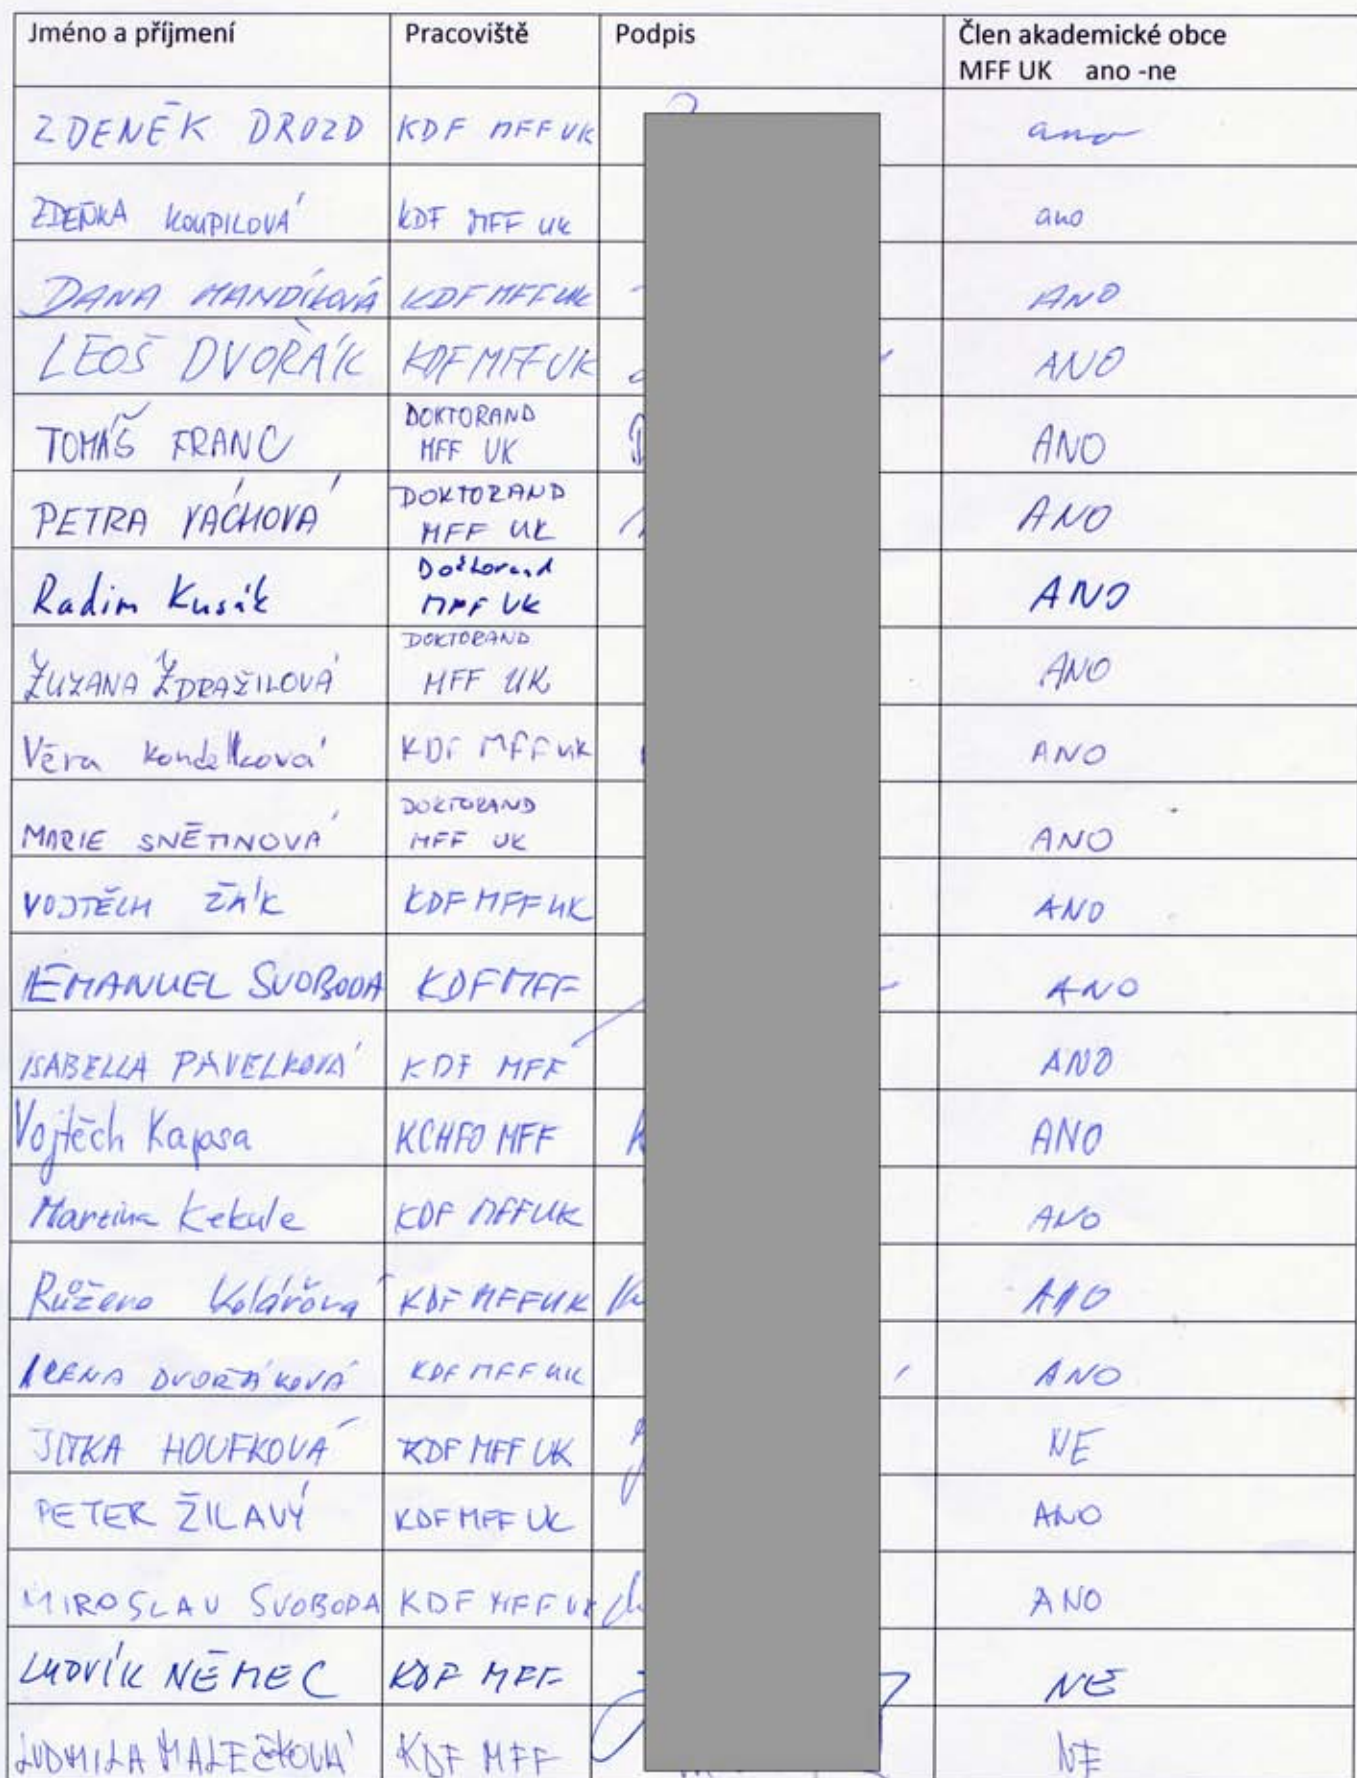 Jméno a příjmení Pracoviště Podpis Člen akademické obce
MFF UK ano -ne
ZDENĚK DROZD KDF MFF UK ano
ZDEŇKA KOUPILOVÁ KDF MFF UK ano
DANA MANDÍKOVÁ KDF MFF UK ANO
LEOŠ DVOŘÁK KDF MFF UK ANO
TOMÁŠ FRANC DOKTORAND
MFF UK ANO
PETRA VÁCHOVÁ DOKTORAND
MFF UK ANO
Radim Kusák Doktorand
MFF UK ANO
ZUZANA ZDRAŽILOVÁ DOKTORAND
MFF UK ANO
Věra Koudelková KDF MFF UK ANO
MARIE SNĚTINOVÁ DOKTORAND
MFF UK ANO
VOJTĚCH ŽÁK KDF MFF UK ANO
EMANUEL SVOBODA KDF MFF ANO
ISABELLA PAVELKOVÁ KDF MFF ANO
Vojtěch Kapsa KCHFO MFF ANO
Martina Kekule KDF MFF UK ANO
Růžena Kolářová KDF MFF UK ANO
IRENA DVOŘÁKOVÁ KDF MFF UK ANO
JITKA HOUFKOVÁ KDF MFF UK NE
PETER ŽILAVÝ KDF MFF UK ANO
MIROSLAV SVOBODA KDF MFF UK ANO
LUDVÍK NĚMEC KDF MFF NE
LUDMILA MALEČKOVÁ KDF MFF NE